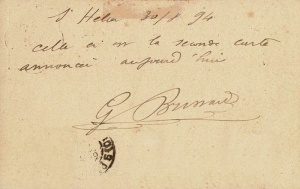 St Helier 30/1 94
celle ci est la seconde carte
annoncée aujourd'hui
G Brunard